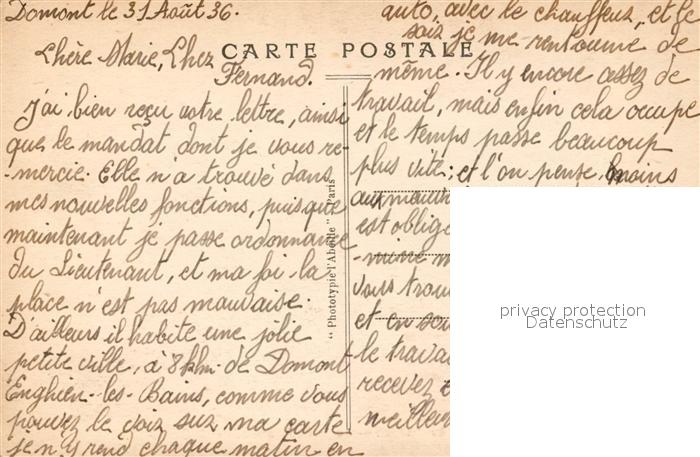 Domont le 31 Août 36.
Chère Marie, Cher
Fernand.
CARTE POSTALE
J'ai bien reçu votre lettre, ainsi
que le mandat dont je vous re-
-mercie. Elle m'a trouvé dans
mes nouvelles fonctions, puisque
maintenant je passe ordonnance
du Lieutenant, et ma foi la
place n'est pas mauvaise.
D'ailleurs il habite une jolie
petite ville, à 8 klm. de Domont
Enghien-les-Bains, comme vous
pouvez le voir sur ma carte
je m'y rend chaque matin en
"Phototypie l'Abeille" Paris
auto, avec le chauffeur, et le
soir je me retourne de
même. Il y encore assez de
travail, mais enfin cela occupe
et le temps passe beaucoup
plus vite; et l'on pense moins
aux
est oblig
vous trou
et en
le travai
recevez
meilleur
privacy protection
Datenschutz